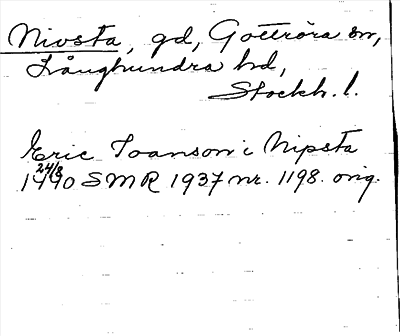 Nivsta, gd, Gottröra sn,
Långhundra hd,
Stockh. l.
Eric Joanson i Nipsta
24/8
1490 SMR 1937 nr. 1198. orig.